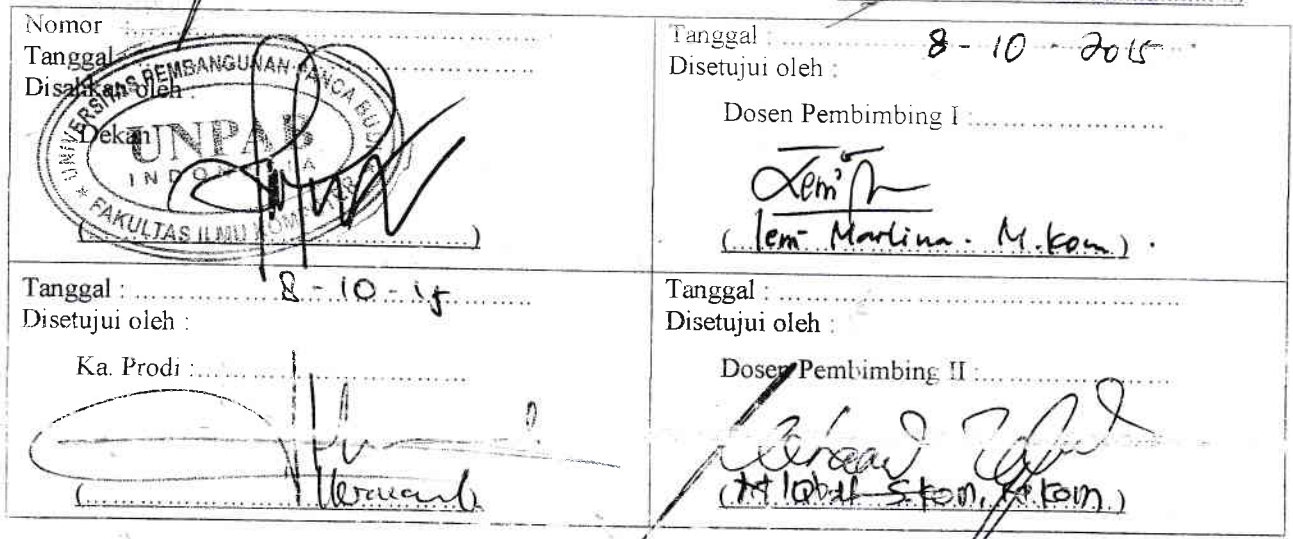 Nomor :
Tanggal :
Disahkan oleh :
Dekan
UNIVERSITAS PEMBANGUNAN PANCA BUDI
UNPAB
INDONESIA
* FAKULTAS ILMU KOMPUTER *
(..............................)
Tanggal : 8 - 10 - 2015
Disetujui oleh :
Dosen Pembimbing I :
(Leni Marlina. M.Kom)
Tanggal : 8 - 10 - 15
Disetujui oleh :
Ka. Prodi :
(..............................)
Tanggal :
Disetujui oleh :
Dosen Pembimbing II :
(M Iqbal S.Kom, M.Kom)